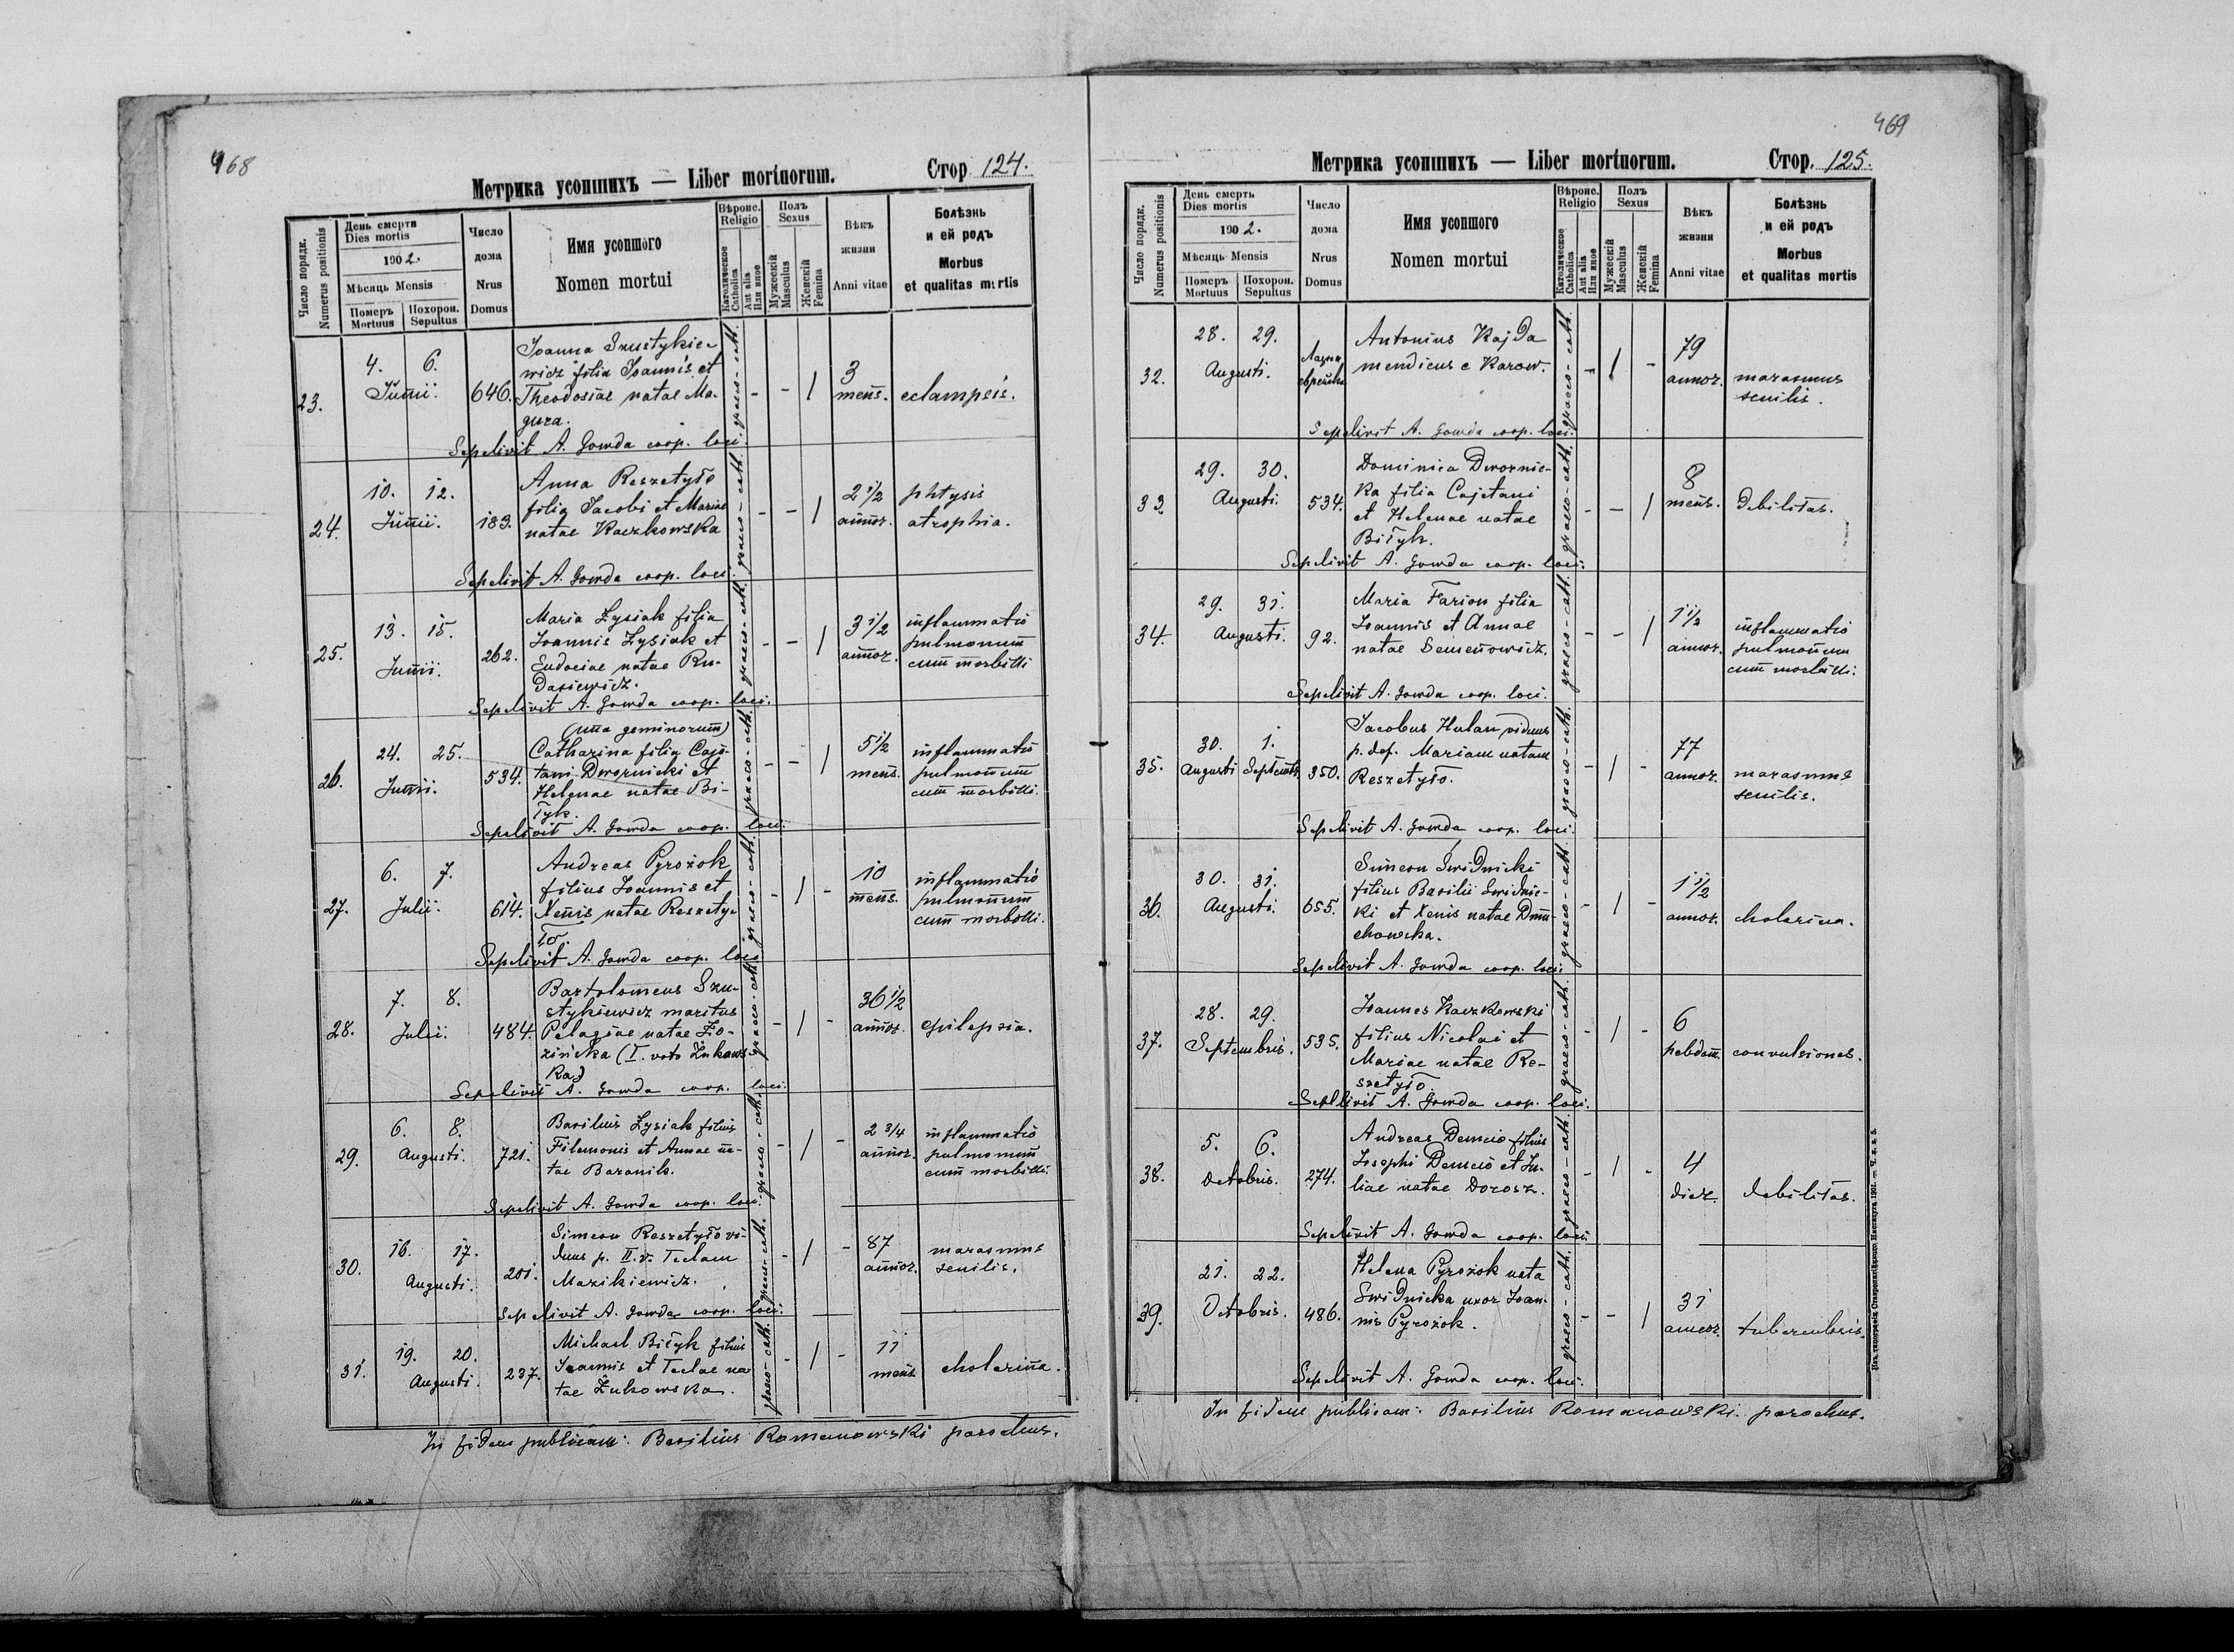 468
Метрика усопшихъ — Liber mortuorum.
Стор 124.
Число порядк.
Numerus positionis
День смерти
Dies mortis
1902.
Мѣсяць Mensis
Померъ
Mortuus
Похорон.
Sepultus
Число
дома
Nrus
Domus
Имя усопшого
Nomen mortui
Вѣроис.
Religio
Католическое
Catholica
Aut alia
Или иное
Полъ
Sexus
Мужескій
Masculus
Женскій
Femina
Вѣкъ
жизни
Anni vitae
Болѣзнь
и ей родъ
Morbus
et qualitas mortis
23.
4. 6.
Junii.
646.
Joanna Szustykie-
wicz filia Joannis et
Theodosiae natae Ma-
gura.
graeco-cath.
- - /
3
mens.
eclampsis.
Sepelivit A. Gowda coop. loci.
24.
10. 12.
Junii.
189.
Anna Reszetyło
filia Jacobi et Mariae
natae Kaczkowska
graeco-cath.
- - /
2 1/2
annor.
phtysis
atrophia.
Sepelivit A. Gowda coop. loci.
25.
13. 15.
Junii.
262.
Maria Łysiak filia
Joannis Łysiak et
Eudociae natae Ru-
dasiewicz.
graeco-cath.
- - /
3 1/2
annor.
inflammatio
pulmonum
cum morbilli
Sepelivit A. Gowda coop. loci.
26.
24. 25.
Junii.
534.
(una geminorum)
Catharina filia Caje-
tani Dwornicki et
Helenae natae Bi-
łyk.
graeco-cath.
- - /
5 1/2
mens.
inflammatio
pulmonum
cum morbilli.
Sepelivit A. Gowda coop. loci.
27.
6. 7.
Julii.
614.
Andreas Pyrożok
filius Joannis et
Xenis natae Reszety-
ło.
graeco-cath.
- / -
10
mens.
inflammatio
pulmonum
cum morbilli.
Sepelivit A. Gowda coop. loci
28.
7. 8.
Julii.
484.
Bartolomeus Szu-
stykiewicz maritus
Pelagiae natae Ło-
zińska (I. voto Żukows-
ka)
graeco-cath.
- / -
36 1/2
annor.
epilepsia.
Sepelivit A. Gowda coop. loci.
29.
6. 8.
Augusti.
721.
Basilius Łysiak filius
Filemonis et Annae na-
tae Baranik.
graeco-cath.
- / -
2 3/4
annor.
inflammatio
pulmonum
cum morbilli.
Sepelivit A. Gowda coop. loci.
30.
16. 17.
Augusti.
201.
Simeon Reszetyło vi-
duus p. II. v. Teclam
Mazikiewicz.
graeco-cath.
- / -
87
annor.
marasmus
senilis.
Sepelivit A. Gowda coop. loci.
31.
19. 20.
Augusti.
237.
Michael Biłyk filius
Joannis et Teclae na-
tae Żukowska.
graeco-cath.
- / -
11
mens.
cholerina.
In fidem publicam: Basilius Romanowski parochus.
469
Метрика усопшихъ — Liber mortuorum.
Стор. 125.
Число порядк.
Numerus positionis
День смерть
Dies mortis
1902.
Мѣсяць Mensis
Померъ
Mortuus
Похорон.
Sepultus
Число
дома
Nrus
Domus
Имя усопшого
Nomen mortui
Вѣроис.
Religio
Католическое
Catholica
Aut alia
Или иное
Полъ
Sexus
Мужескій
Masculus
Женскій
Femina
Вѣкъ
жизни
Anni vitae
Болѣзнь
и ей родъ
Morbus
et qualitas mortis
32.
28. 29.
Augusti.
Antonius Kajda
mendicus e Karow.
graeco-cath.
- / -
79
annor.
marasmus
senilis.
Sepelivit A. Gowda coop. loci.
33
29. 30.
Augusti.
534.
Dominica Dwornic-
ka filia Cajetani
et Helenae natae
Biłyk.
graeco-cath.
- - /
8
mens.
debilitas.
Sepelivit A. Gowda coop. loci.
34.
29. 31.
Augusti.
92.
Maria Farion filia
Joannis et Annae
natae Semenowicz.
graeco-cath.
- - /
1 1/2
annor.
inflammatio
pulmonum
cum morbilli.
Sepelivit A. Gowda coop. loci.
35.
30. 1.
Augusti Septemb.
350.
Jacobus Hulan viduus
p. def. Mariam natam
Reszetyło.
graeco-cath.
- / -
77
annor.
marasmus
senilis.
Sepelivit A. Gowda coop. loci.
36.
30. 31.
Augusti.
655.
Simeon Swidnicki
filius Basilii Swidnic-
ki et Xenis natae Dmu-
chowska.
graeco-cath.
- / -
1 1/2
annor.
cholerina.
Sepelivit A. Gowda coop. loci
37.
28. 29.
Septembris.
535.
Joannes Kaczkowski
filius Nicolai et
Mariae natae Re-
szetyło.
graeco-cath.
- / -
6
hebdom.
convulsiones.
Sepelivit A. Gowda coop. loci.
38.
5. 6.
Octobris.
274.
Andreas Demcio filius
Josephi Demcio et Ju-
liae natae Dorosz.
graeco-cath.
- / -
4
dier.
debilitas.
Sepelivit A. Gowda coop. loci.
39.
21. 22.
Octobris.
486.
Helena Pyrożok nata
Swidnicka uxor Joan-
nis Pyrożok.
graeco-cath.
- - /
31
annor.
tuberculosis.
Sepelivit A. Gowda coop. loci.
In fidem publicam: Basilius Romanowski parochus.
Изъ типографіи Ставропигійского Института 1901. — Ч. к. в. 5.